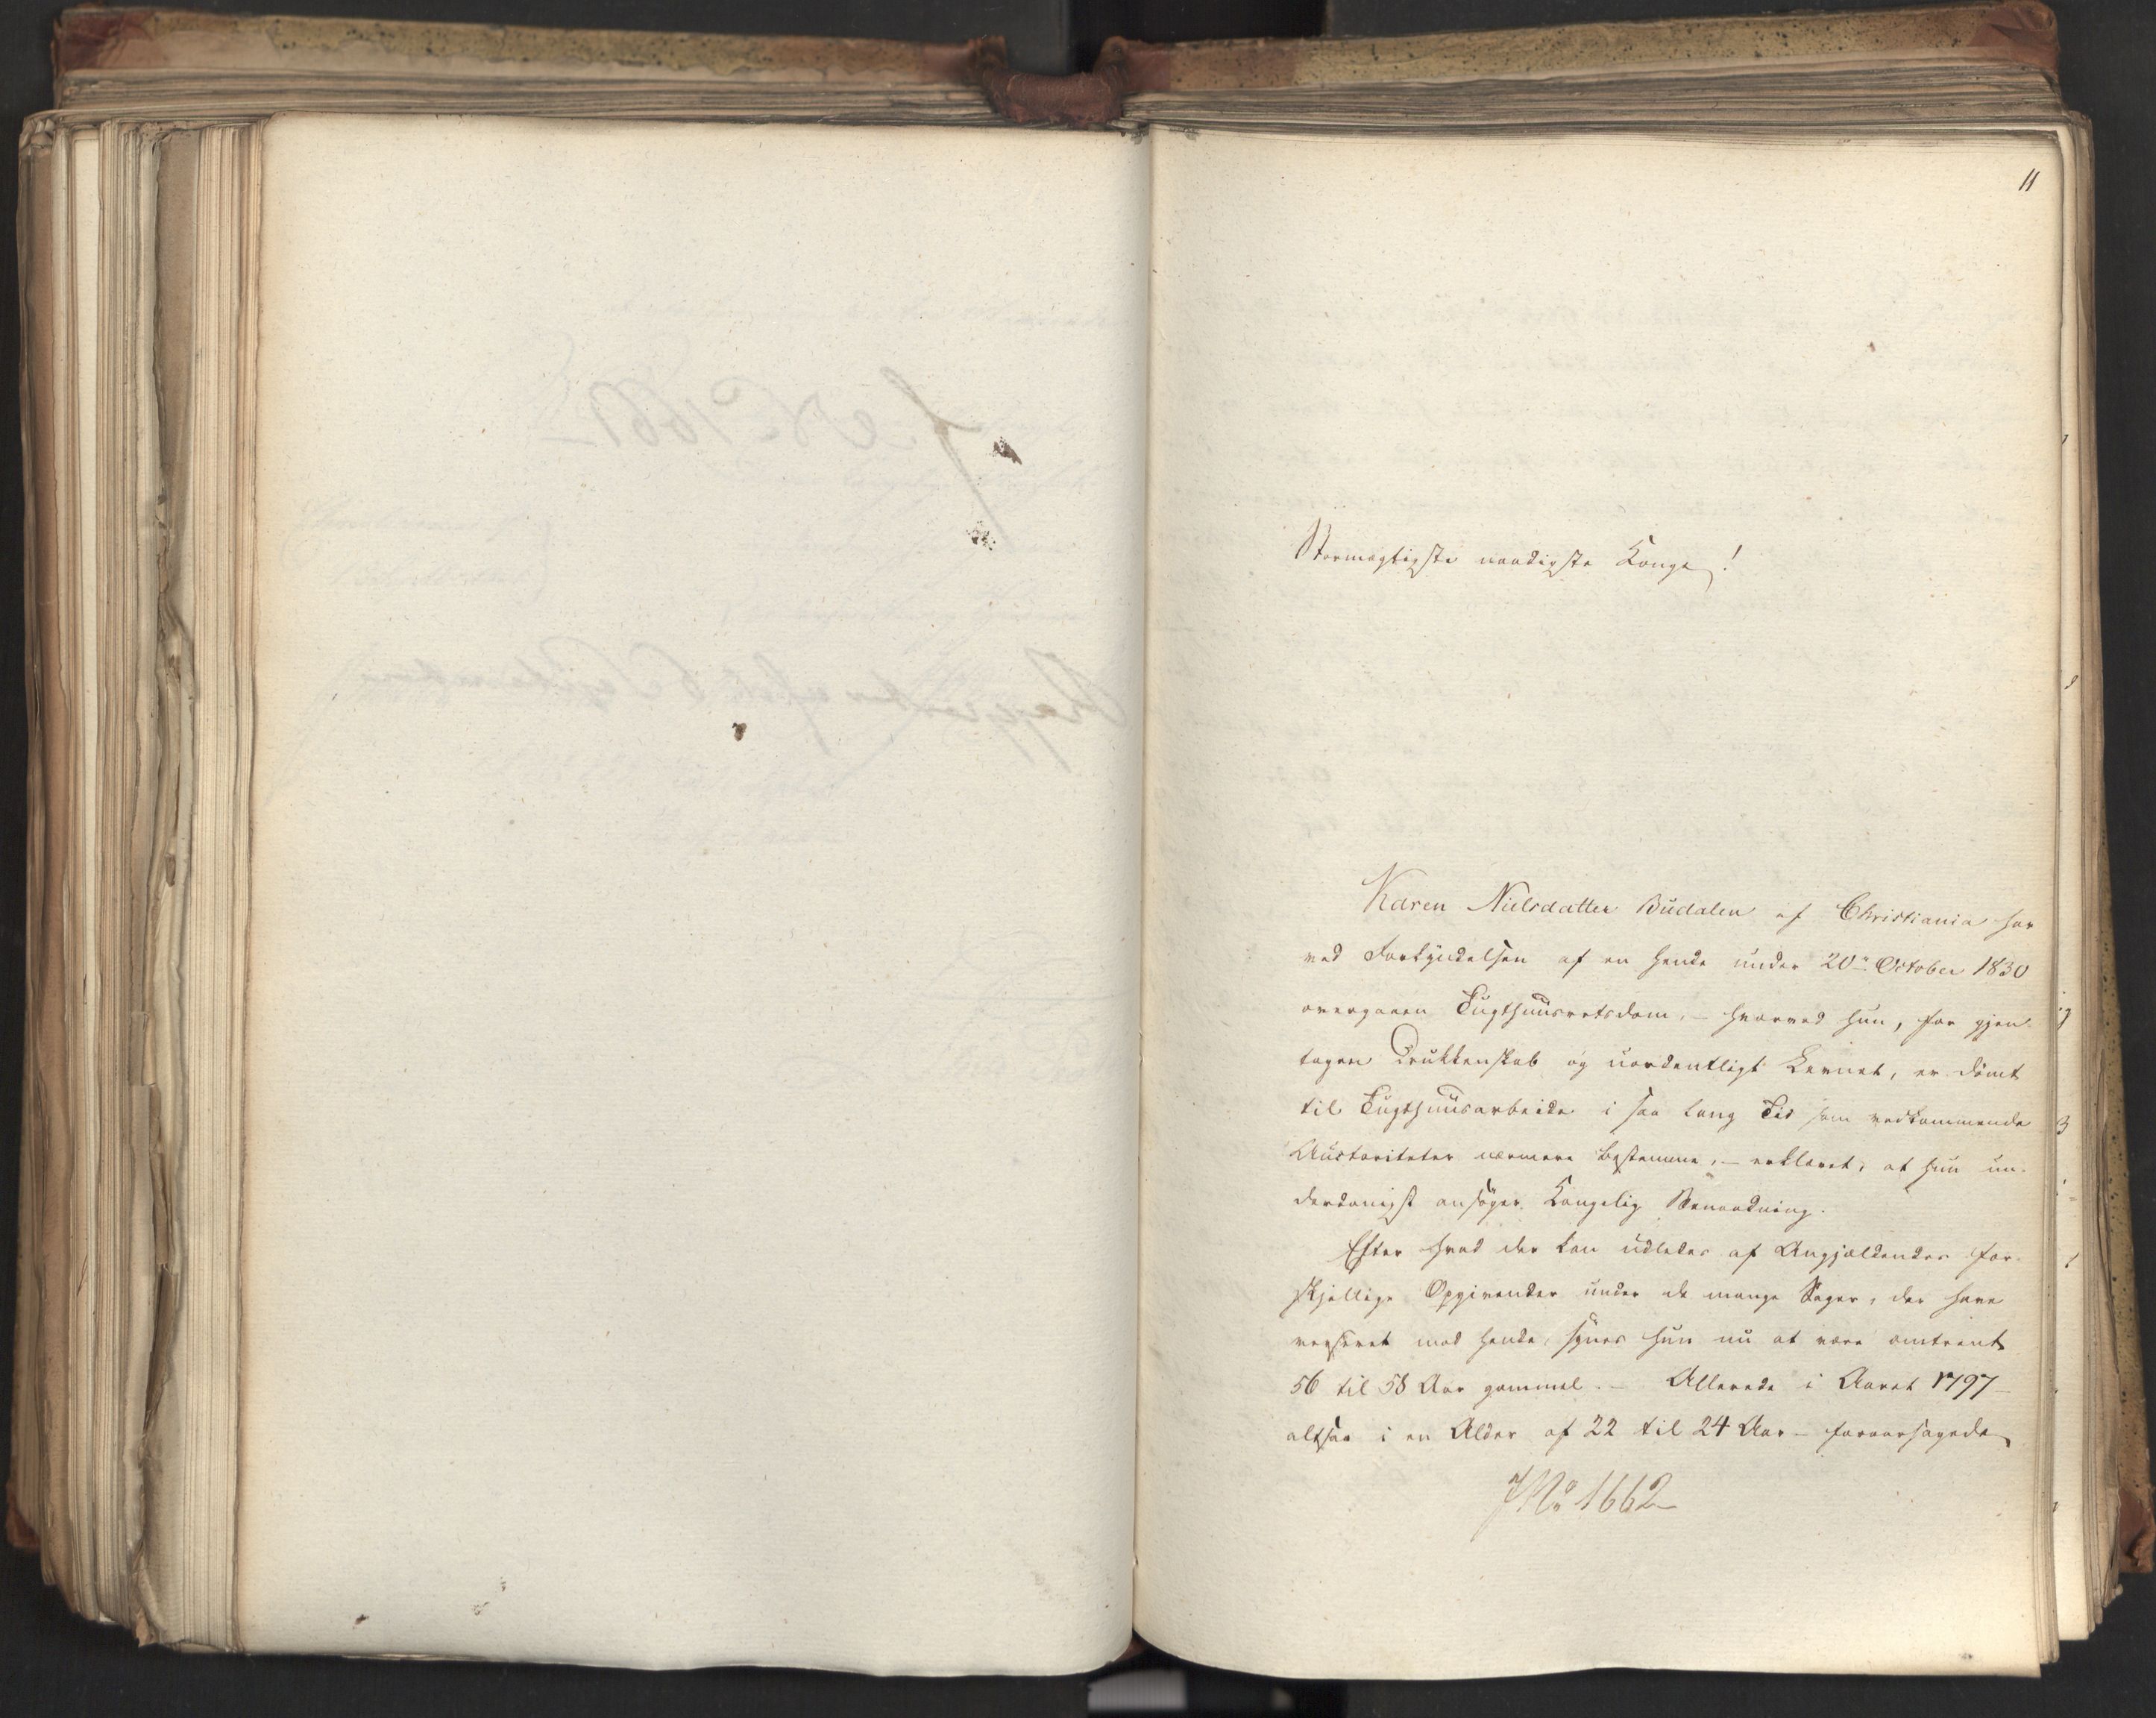 11
Stormægtigste naadigste Konge!
Karen Nielsdatter Budalen af Christiania har
ved Forkyndelsen af en hende under 20de October 1830
overgaaen Tugthuusretsdom, – hvorved hun, for gjen-
tagen Drukkenskab og uordentligt Levnet, er dömt
til Tugthuusarbeide i saa lang Tid som vedkommende
Auctoriteter nærmere bestemme, – erklæret, at hun un-
derdanigst ansöger Kongelig Benaadning.
Efter hvad der kan udledes af Angjældendes for-
skjellige Opgivender under de mange Sager, der have
verseret mod hende, synes hun nu at være omtrent
56 til 58 Aar gammel. – Allerede i Aaret 1797 –
altsaa i en Alder af 22 til 24 Aar – foraarsagede
JNo 1662